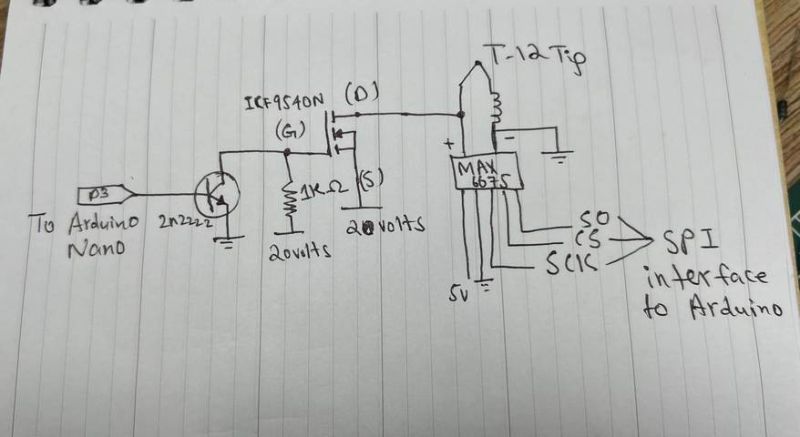 T-12 Tip
IRF9540N (D)
(G)
+
-
MAX
6675
D3
1KΩ
(S)
To Arduino
Nano
2n2222
20volts
20volts
SO
CS
SCK
SPI
interface
to Arduino
5V